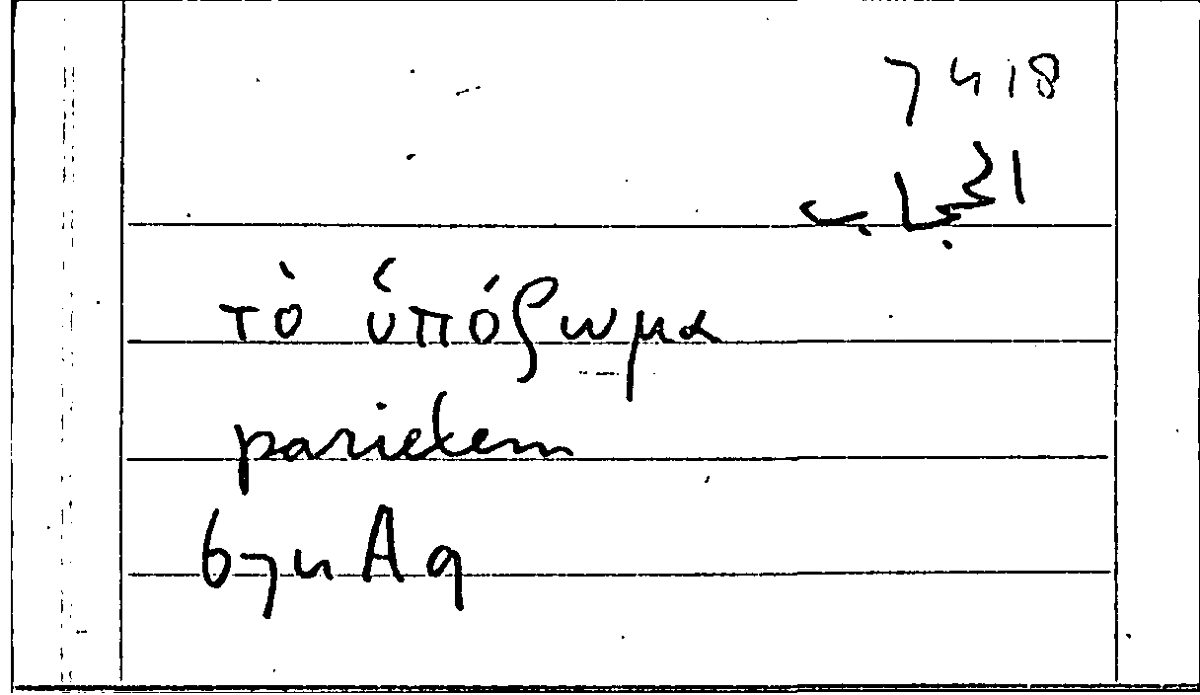 7418
الحجاب
τὸ ὑπόζωμα
parietem
674A9